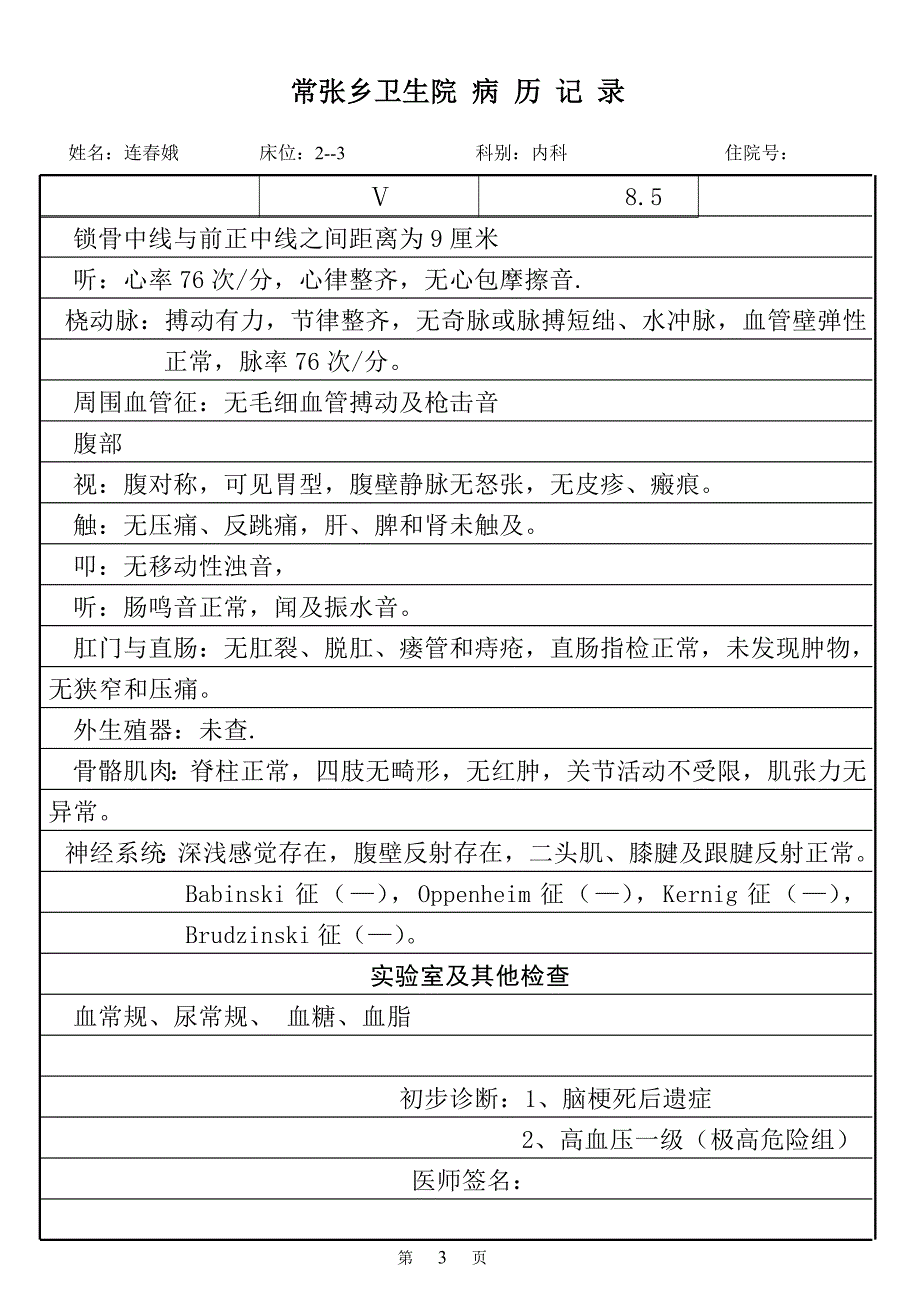 常张乡卫生院 病 历 记 录
姓名：连春娥 床位：2--3 科别：内科 住院号：
V 8.5
锁骨中线与前正中线之间距离为9厘米
听：心率76次/分，心律整齐，无心包摩擦音.
桡动脉：搏动有力，节律整齐，无奇脉或脉搏短绌、水冲脉，血管壁弹性
正常，脉率76次/分。
周围血管征：无毛细血管搏动及枪击音
腹部
视：腹对称，可见胃型，腹壁静脉无怒张，无皮疹、瘢痕。
触：无压痛、反跳痛，肝、脾和肾未触及。
叩：无移动性浊音，
听：肠鸣音正常，闻及振水音。
肛门与直肠：无肛裂、脱肛、瘘管和痔疮，直肠指检正常，未发现肿物，
无狭窄和压痛。
外生殖器：未查.
骨骼肌肉：脊柱正常，四肢无畸形，无红肿，关节活动不受限，肌张力无
异常。
神经系统：深浅感觉存在，腹壁反射存在，二头肌、膝腱及跟腱反射正常。
Babinski征（—），Oppenheim征（—），Kernig征（—），
Brudzinski征（—）。
实验室及其他检查
血常规、尿常规、 血糖、血脂
初步诊断：1、脑梗死后遗症
2、高血压一级（极高危险组）
医师签名：
第 3 页